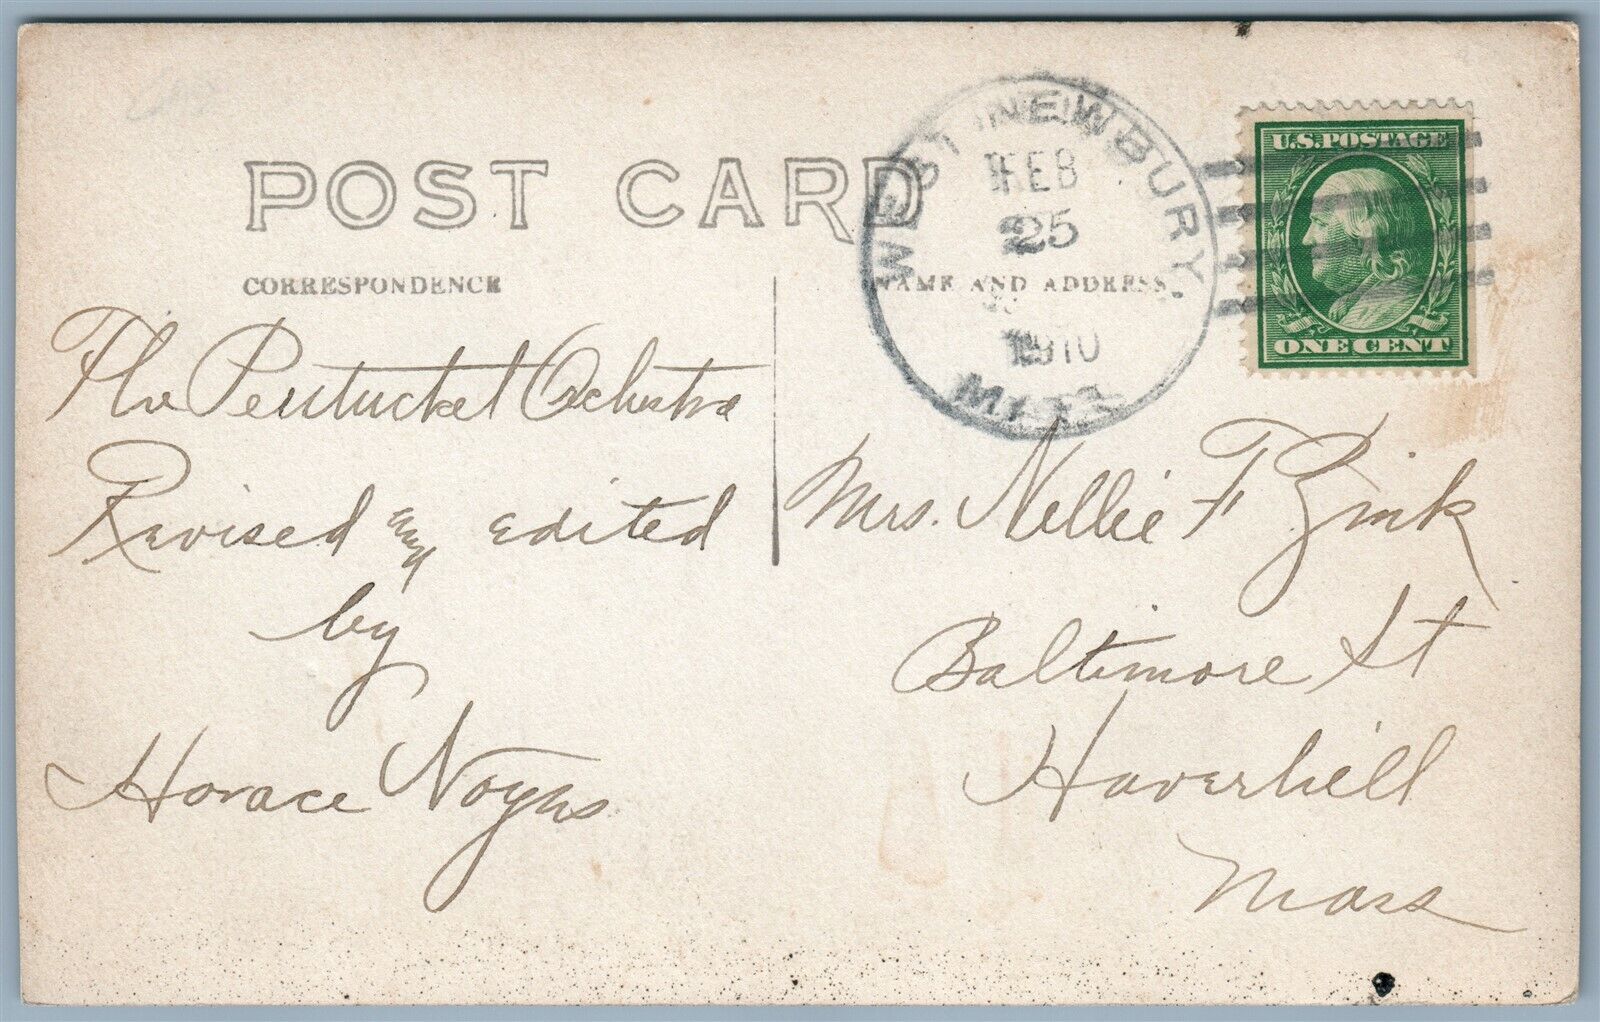 POST CARD
CORRESPONDENCE
NAME AND ADDRESS
WEST NEWBURY,
FEB
25
1910
MASS.
U.S. POSTAGE
ONE CENT
The Pentucket Ochestra
Revised and edited
by
Horace Noyes
Mrs. Nellie F Zink
Baltimore St
Haverhill
Mass